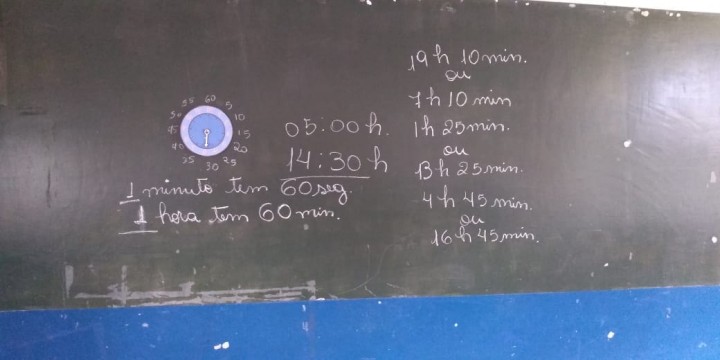 60
5
10
15
20
25
30
35
40
45
50
55
05:00 h.
14:30 h
1 minuto tem 60 seg.
1 hora tem 60 min.
19 h 10 min.
ou
7 h 10 min
1 h 25 min.
ou
13 h 25 min.
4 h 45 min.
ou
16 h 45 min.